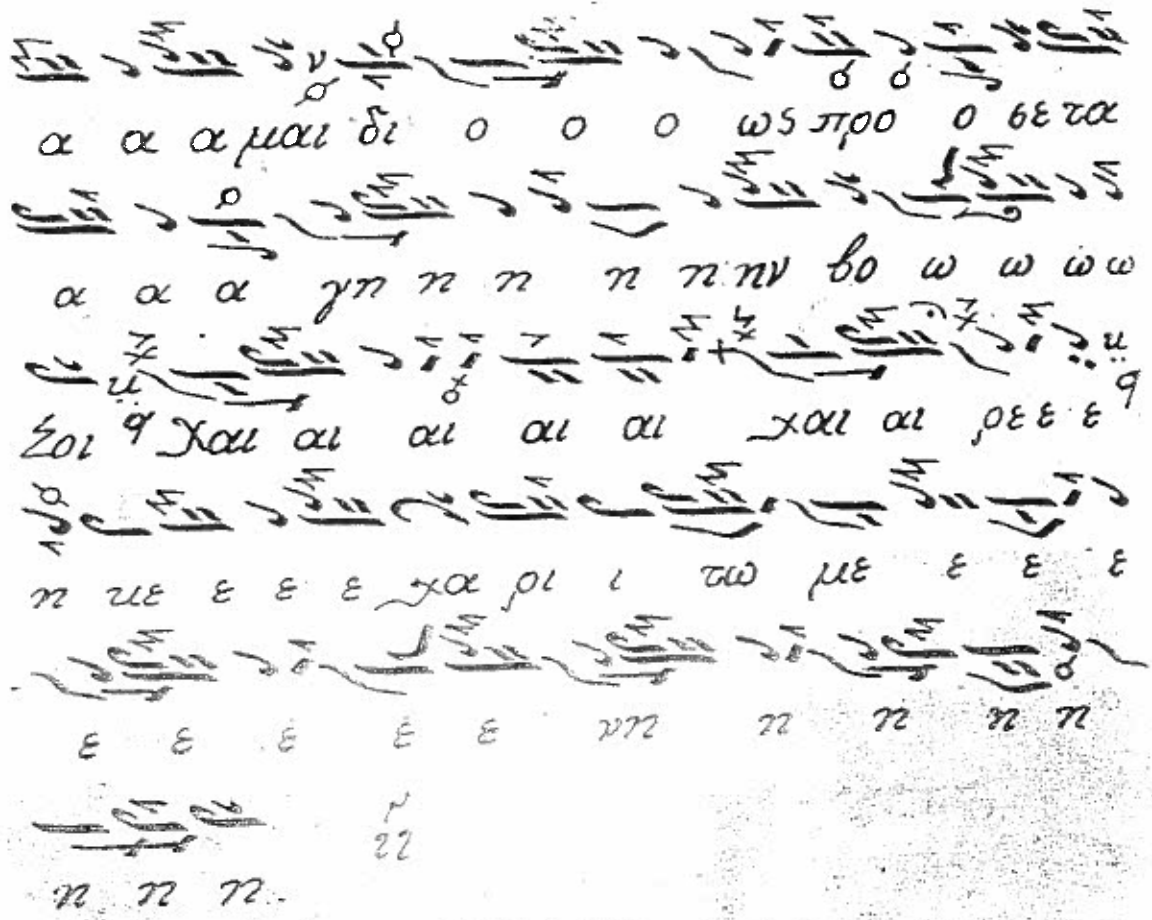 α α α μαι δι ο ο ο ως προ ο σε τα
α α α γη η η η η ην βο ω ω ω ω
Σοι Χαι αι αι αι αι χαι αι ρε ε ε
η κε ε ε ε χα ρι ι τω με ε ε ε
ε ε ε ε ε νη η η η η
η η η